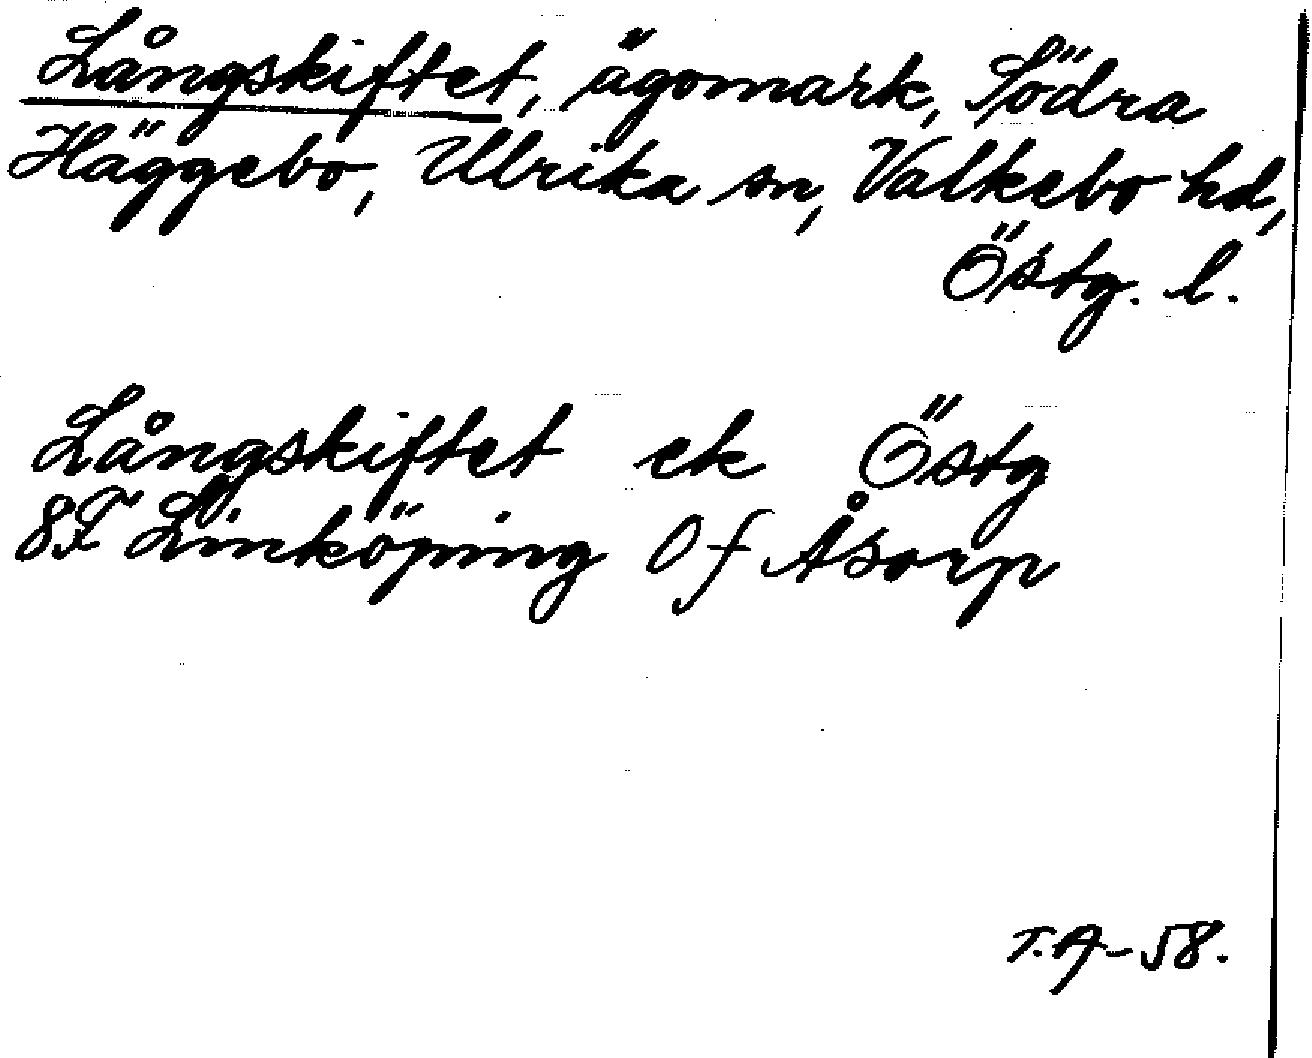 Långskiftet, ägomark, Södra
Häggebo, Ulrika sn, Valkebo hd,
Östg. l.
Långskiftet ek Östg
8F Linköping 0f Åsorp
T.A-58.